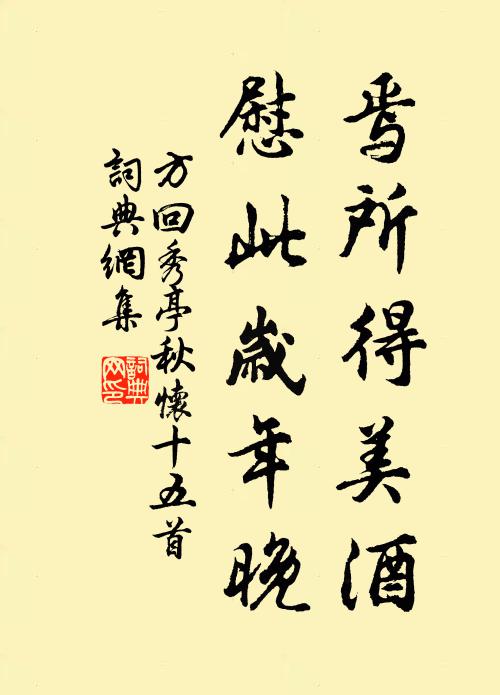 焉所得美酒
慰此歲年晚
方回秀亭秋懷十五首
詞典網集
詞典网印